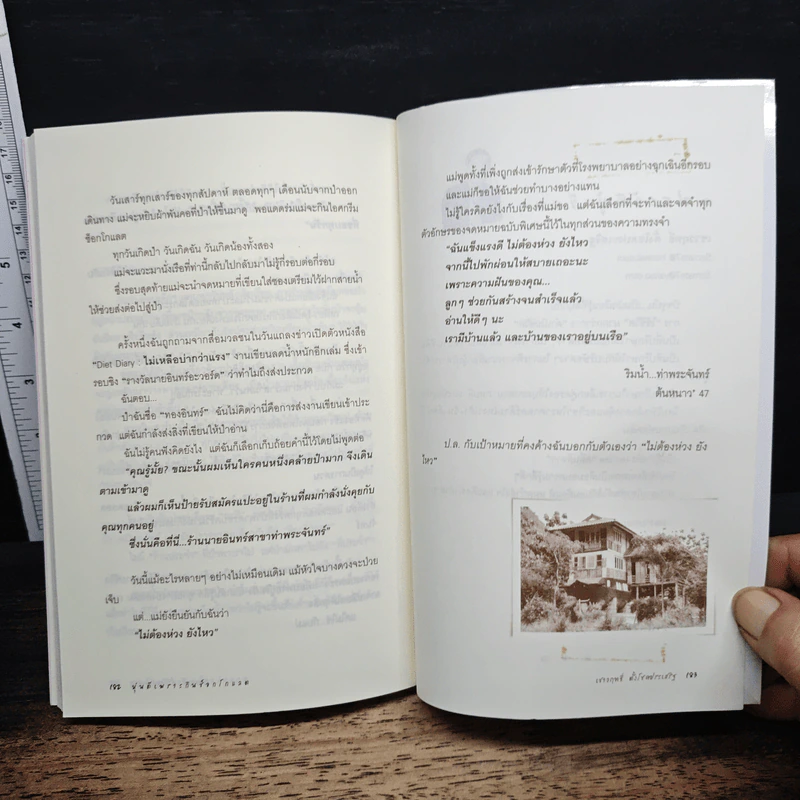 วันเสาร์ทุกเสาร์ของทุกสัปดาห์ ตลอดทุกๆ เดือนนับจากป๋าออก
เดินทาง แม่จะหยิบผ้าพันคอที่ป๋าให้ขึ้นมาดู พอแดดร่มแม่จะกินไอศกรีม
ช็อกโกแลต
ทุกวันเกิดป๋า วันเกิดฉัน วันเกิดน้องทั้งสอง
แม่จะแวะมานั่งเรือที่ท่านี้กลับไปกลับมาไม่รู้กี่รอบต่อกี่รอบ
ซึ่งรอบสุดท้ายแม่จะนำจดหมายที่เขียนใส่ซองเตรียมไว้ฝากสายน้ำ
ให้ช่วยส่งต่อไปสู่ป๋า
ครั้งหนึ่งฉันถูกถามจากสื่อมวลชนในวันแถลงข่าวเปิดตัวหนังสือ
"Diet Diary : ไม่เหลือบ่ากว่าแรง" งานเขียนลดน้ำหนักอีกเล่ม ซึ่งเข้า
รอบชิง "รางวัลนายอินทร์อะวอร์ด" ว่าทำไมถึงส่งประกวด
ฉันตอบ...
ป๋าฉันชื่อ "ทองอินทร์" ฉันไม่คิดว่านี่คือการส่งงานเขียนเข้าประ
กวด แต่ฉันกำลังส่งสิ่งที่เขียนให้ป๋าอ่าน
ฉันไม่รู้คนฟังคิดยังไง แต่ฉันก็เลือกเก็บถ้อยคำนี้ไว้โดยไม่พูดต่อ
"คุณรู้มั้ย? ขณะนั้นผมเห็นใครคนหนึ่งคล้ายป๋ามาก จึงเดิน
ตามเข้ามาดู
แล้วผมก็เห็นป้ายรับสมัครแปะอยู่ในร้านที่ผมกำลังนั่งคุยกับ
คุณทุกคนอยู่
ซึ่งนั่นคือที่นี่...ร้านนายอินทร์สาขาท่าพระจันทร์"
วันนี้แม้อะไรหลายๆ อย่างไม่เหมือนเดิม แม้หัวใจบางดวงจะป่วย
เจ็บ
แต่...แม่ยังยืนยันกับฉันว่า
"ไม่ต้องห่วง ยังไหว"
182 หุ่นดีเพราะกินช็อกโกแลต
แม่พูดทั้งที่เพิ่งถูกส่งเข้ารักษาตัวที่โรงพยาบาลอย่างฉุกเฉินอีกรอบ
และแม่ก็ขอให้ฉันช่วยทำบางอย่างแทน
ไม่รู้ใครคิดยังไงกับเรื่องที่แม่ขอ แต่ฉันเลือกที่จะทำและจดจำทุก
ตัวอักษรของจดหมายฉบับพิเศษนี้ไว้ในทุกส่วนของความทรงจำ
"ฉันแข็งแรงดี ไม่ต้องห่วง ยังไหว
จากนี้ไปพักผ่อนให้สบายเถอะนะ
เพราะความฝันของคุณ...
ลูกๆ ช่วยกันสร้างจนสำเร็จแล้ว
อ่านให้ดีๆ นะ
เรามีบ้านแล้ว และบ้านของเราอยู่บนเรือ"
ริมน้ำ...ท่าพระจันทร์
ต้นหนาว' 47
ป.ล. กับเป้าหมายที่คงค้างฉันบอกกับตัวเองว่า "ไม่ต้องห่วง ยัง
ไหว"
183